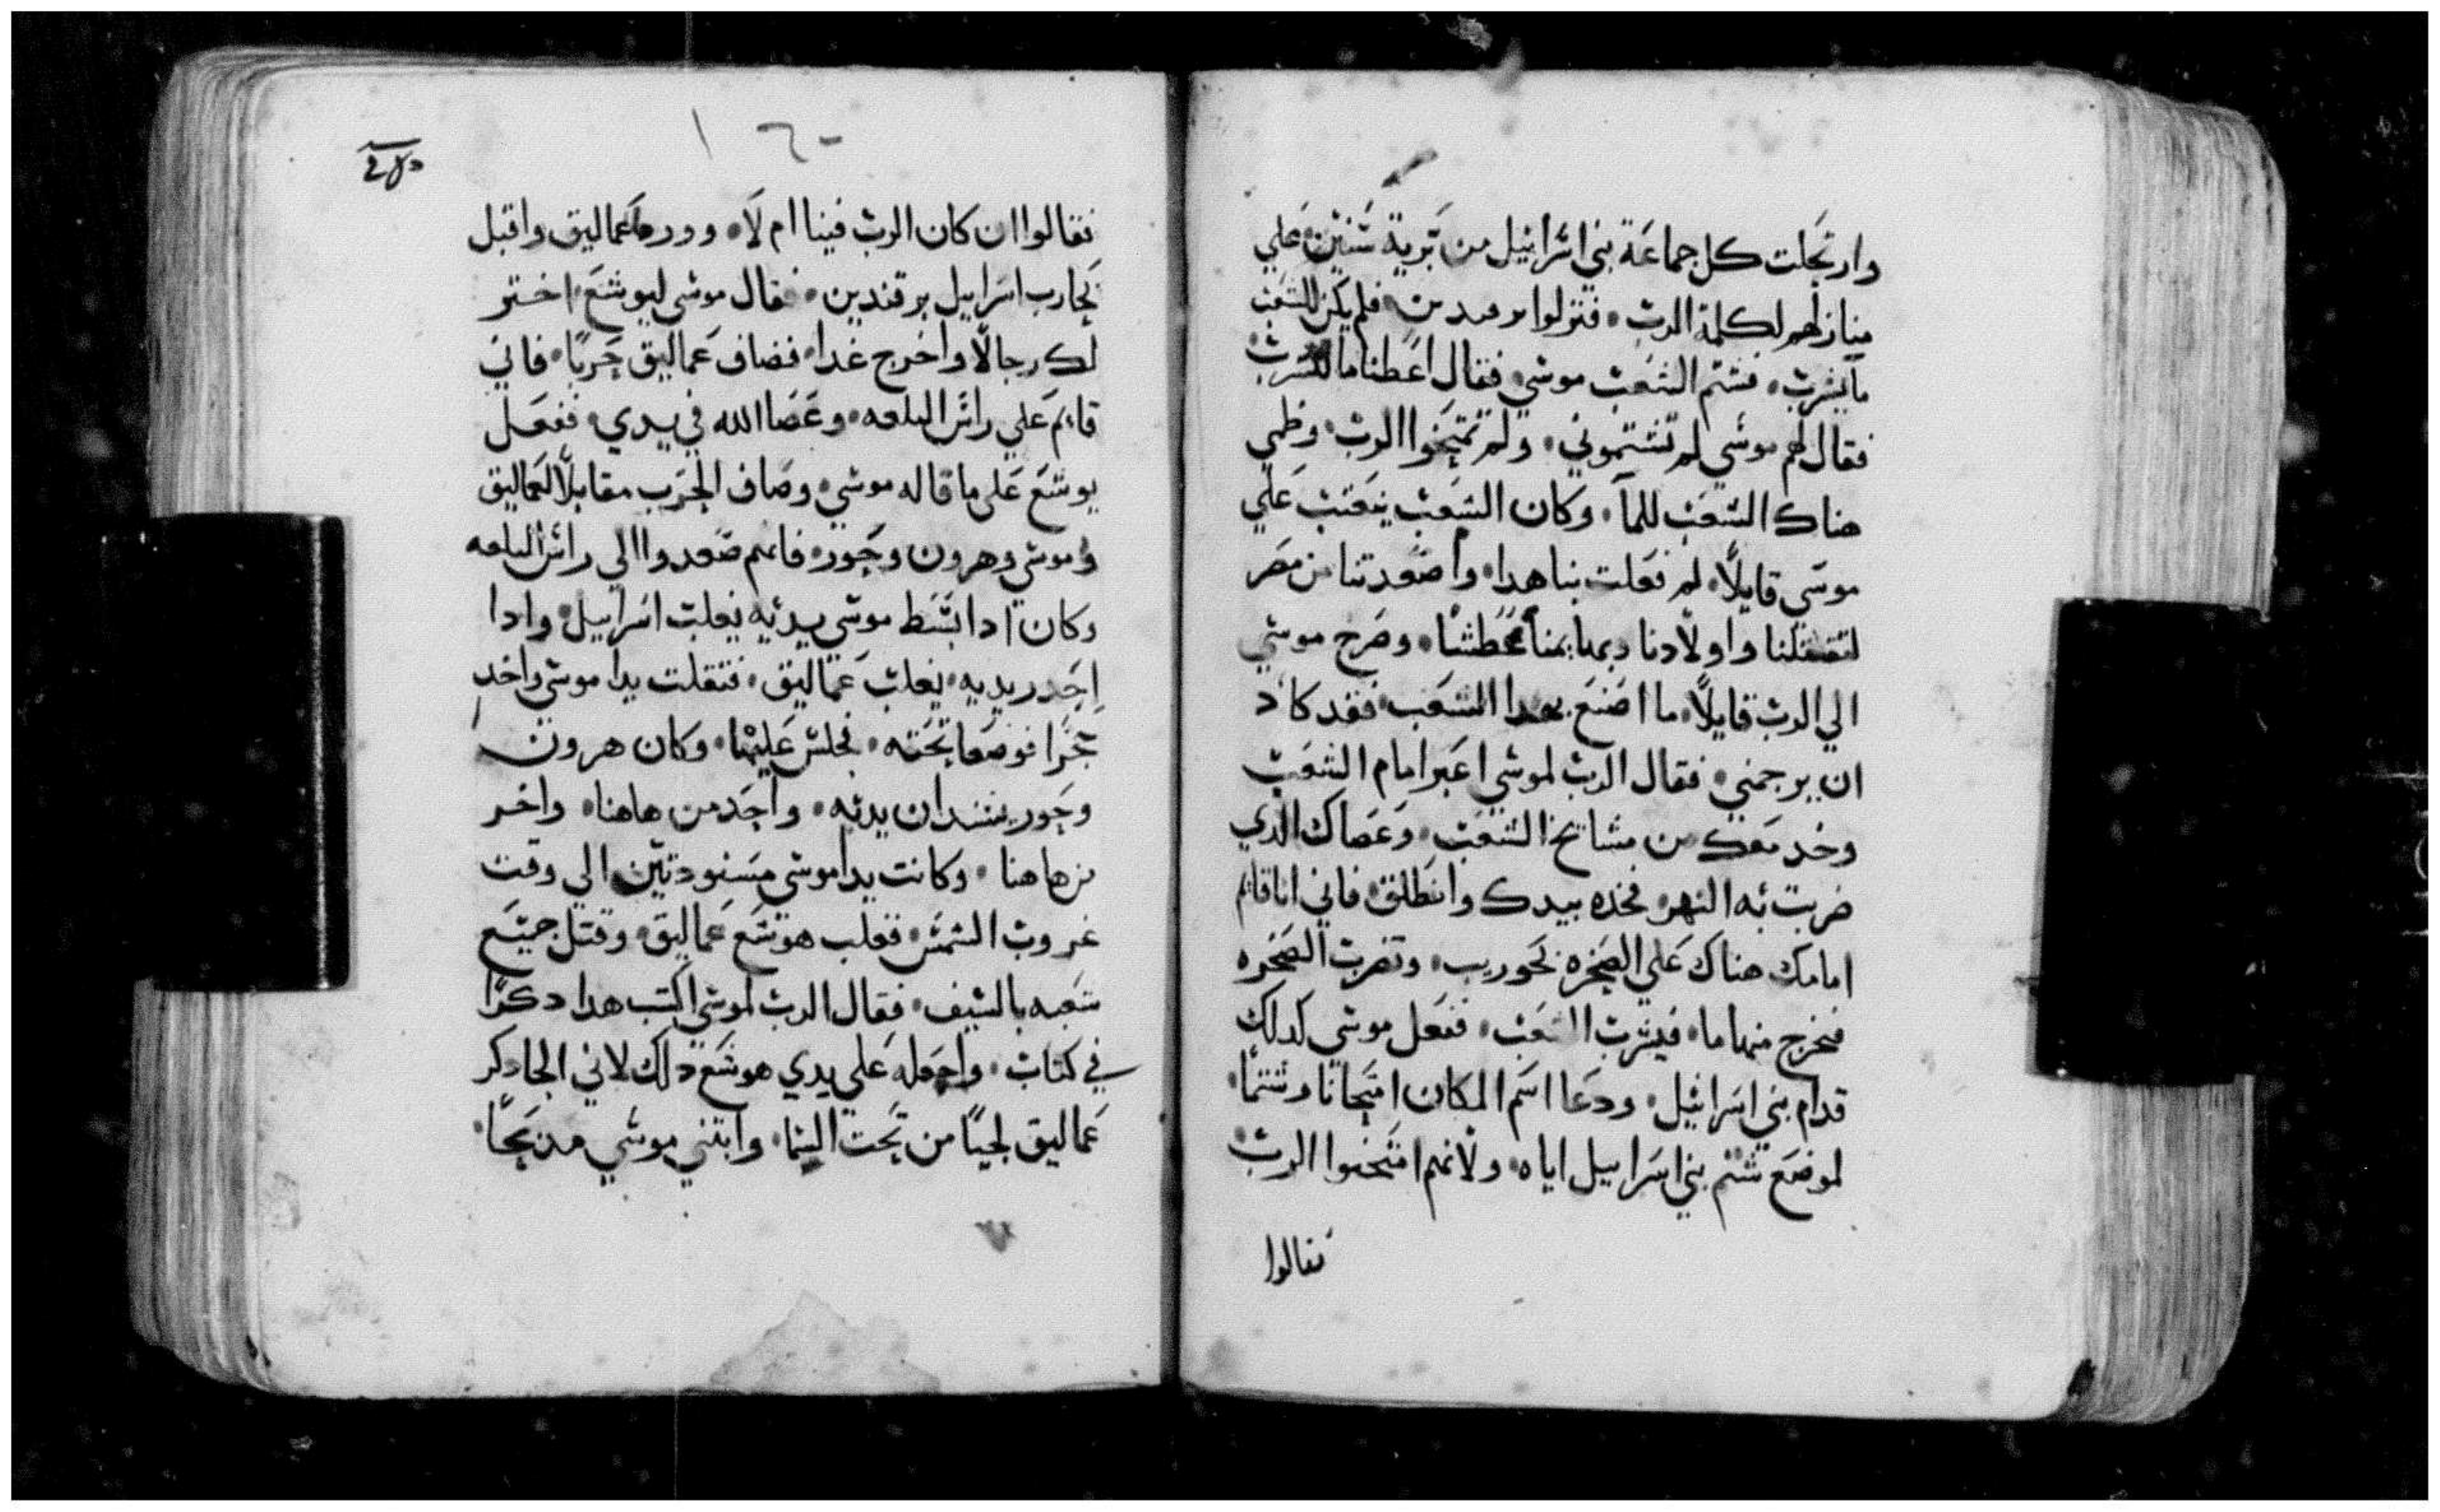 وارتحلت كل جماعة بني اسرائيل من برية سنين علي
منازلهم لكلمة الرب. فنزلوا برفيدين. فلم يكن للشعب
ما يشرب. فشتم الشعب موسي. فقال اعطنا ما لنشرب
فقال لهم موسي لم تشتموني. ولم تمتحنوا الرب. وظمي
هناك الشعب للمآ. وكان الشعب يتعتب علي
موسي قايلاً. لم فعلت بنا هدا. وأصعدتنا من مصر
لتقتلنا واولادنا وبهايمنا عطشًا. وصرخ موسي
الي الرب قايلاً. ما اصنع بهدا الشعب. فقد كاد
ان يرجمني. فقال الرب لموسي اعبر امام الشعب
وخد معك من مشايخ الشعب. وعصاك الدي
ضربت به النهر. فخده بيدك وانطلق. فاني انا قايم
امامك هناك علي الصخره بحوريب. وتضرب الصخره
فيخرج منها ما. فيشرب الشعب. ففعل موسي كدلك
قدام بني اسرائيل. ودعا اسم المكان امتحانًا وشتمًا.
لموضع شتم بني اسراييل اياه. ولانهم امتحنوا الرب
فقالوا
١٦٠
فقالوا ان كان الرب فينا ام لا. وورد عماليق واقبل
يحارب اسراييل برقندين. فقال موسي ليوشع اختر
لك رجالاً واخرج غدا. فصاف عماليق حربًا. فاني
قايم علي راس التلعه. وعصا الله في يدي. ففعل
يوشع علي ما قاله موسي. وصاف الحرب مقابلاً لعماليق
وموسي وهرون وحور. فانهم صعدوا الي راس التلعه
وكان ادا بسط موسي يديه يغلب اسراييل. وادا
احدر يديه. يغلب عماليق. فثقلت يدا موسي واخدا
حجرًا فوضعا تحته. فجلس عليها. وكان هرون
وحور يسندان يديه. واحد من هاهنا. واخر
من هاهنا. وكانت يدا موسي مسنودتين الي وقت
غروب الشمس. فغلب هوشع عماليق. وقتل جميع
شعبه بالسيف. فقال الرب لموسي اكتب هدا دكرًا
في كتاب. واجعله علي يدي هوشع دلك لاني الحا دكر
عماليق لحيًا من تحت السما. وابتني موسي مدبحًا.